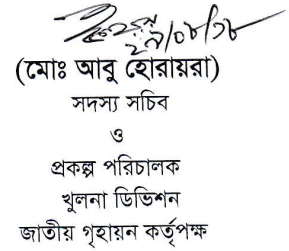 ২৯/০৮/১৮
(মোঃ আবু হোরায়রা)
সদস্য সচিব
ও
প্রকল্প পরিচালক
খুলনা ডিভিশন
জাতীয় গৃহায়ন কর্তৃপক্ষ